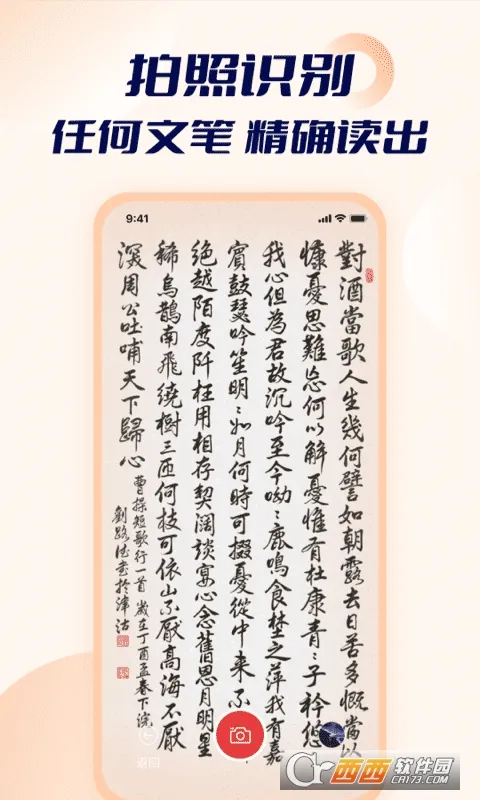 拍照识别
任何文笔 精确读出
9:41
對酒當歌人生幾何譬如朝露去日苦多慨當以
慷憂思難忘何以解憂惟有杜康青〻子衿悠
我心但為君故沉吟至今呦〻鹿鳴食埜之苹我有嘉
賓鼓瑟吟笙明〻如月何時可掇憂從中来不
絕越陌度阡枉用相存契闊談宴心念舊思月明星
稀烏鵲南飛繞樹三匝何枝可依山不厭高海不厭
深周公吐哺天下歸心
曹操短歌行一首 歲在丁酉孟春下浣
劉路德書於津沽
返回
西西软件园
CR173.COM